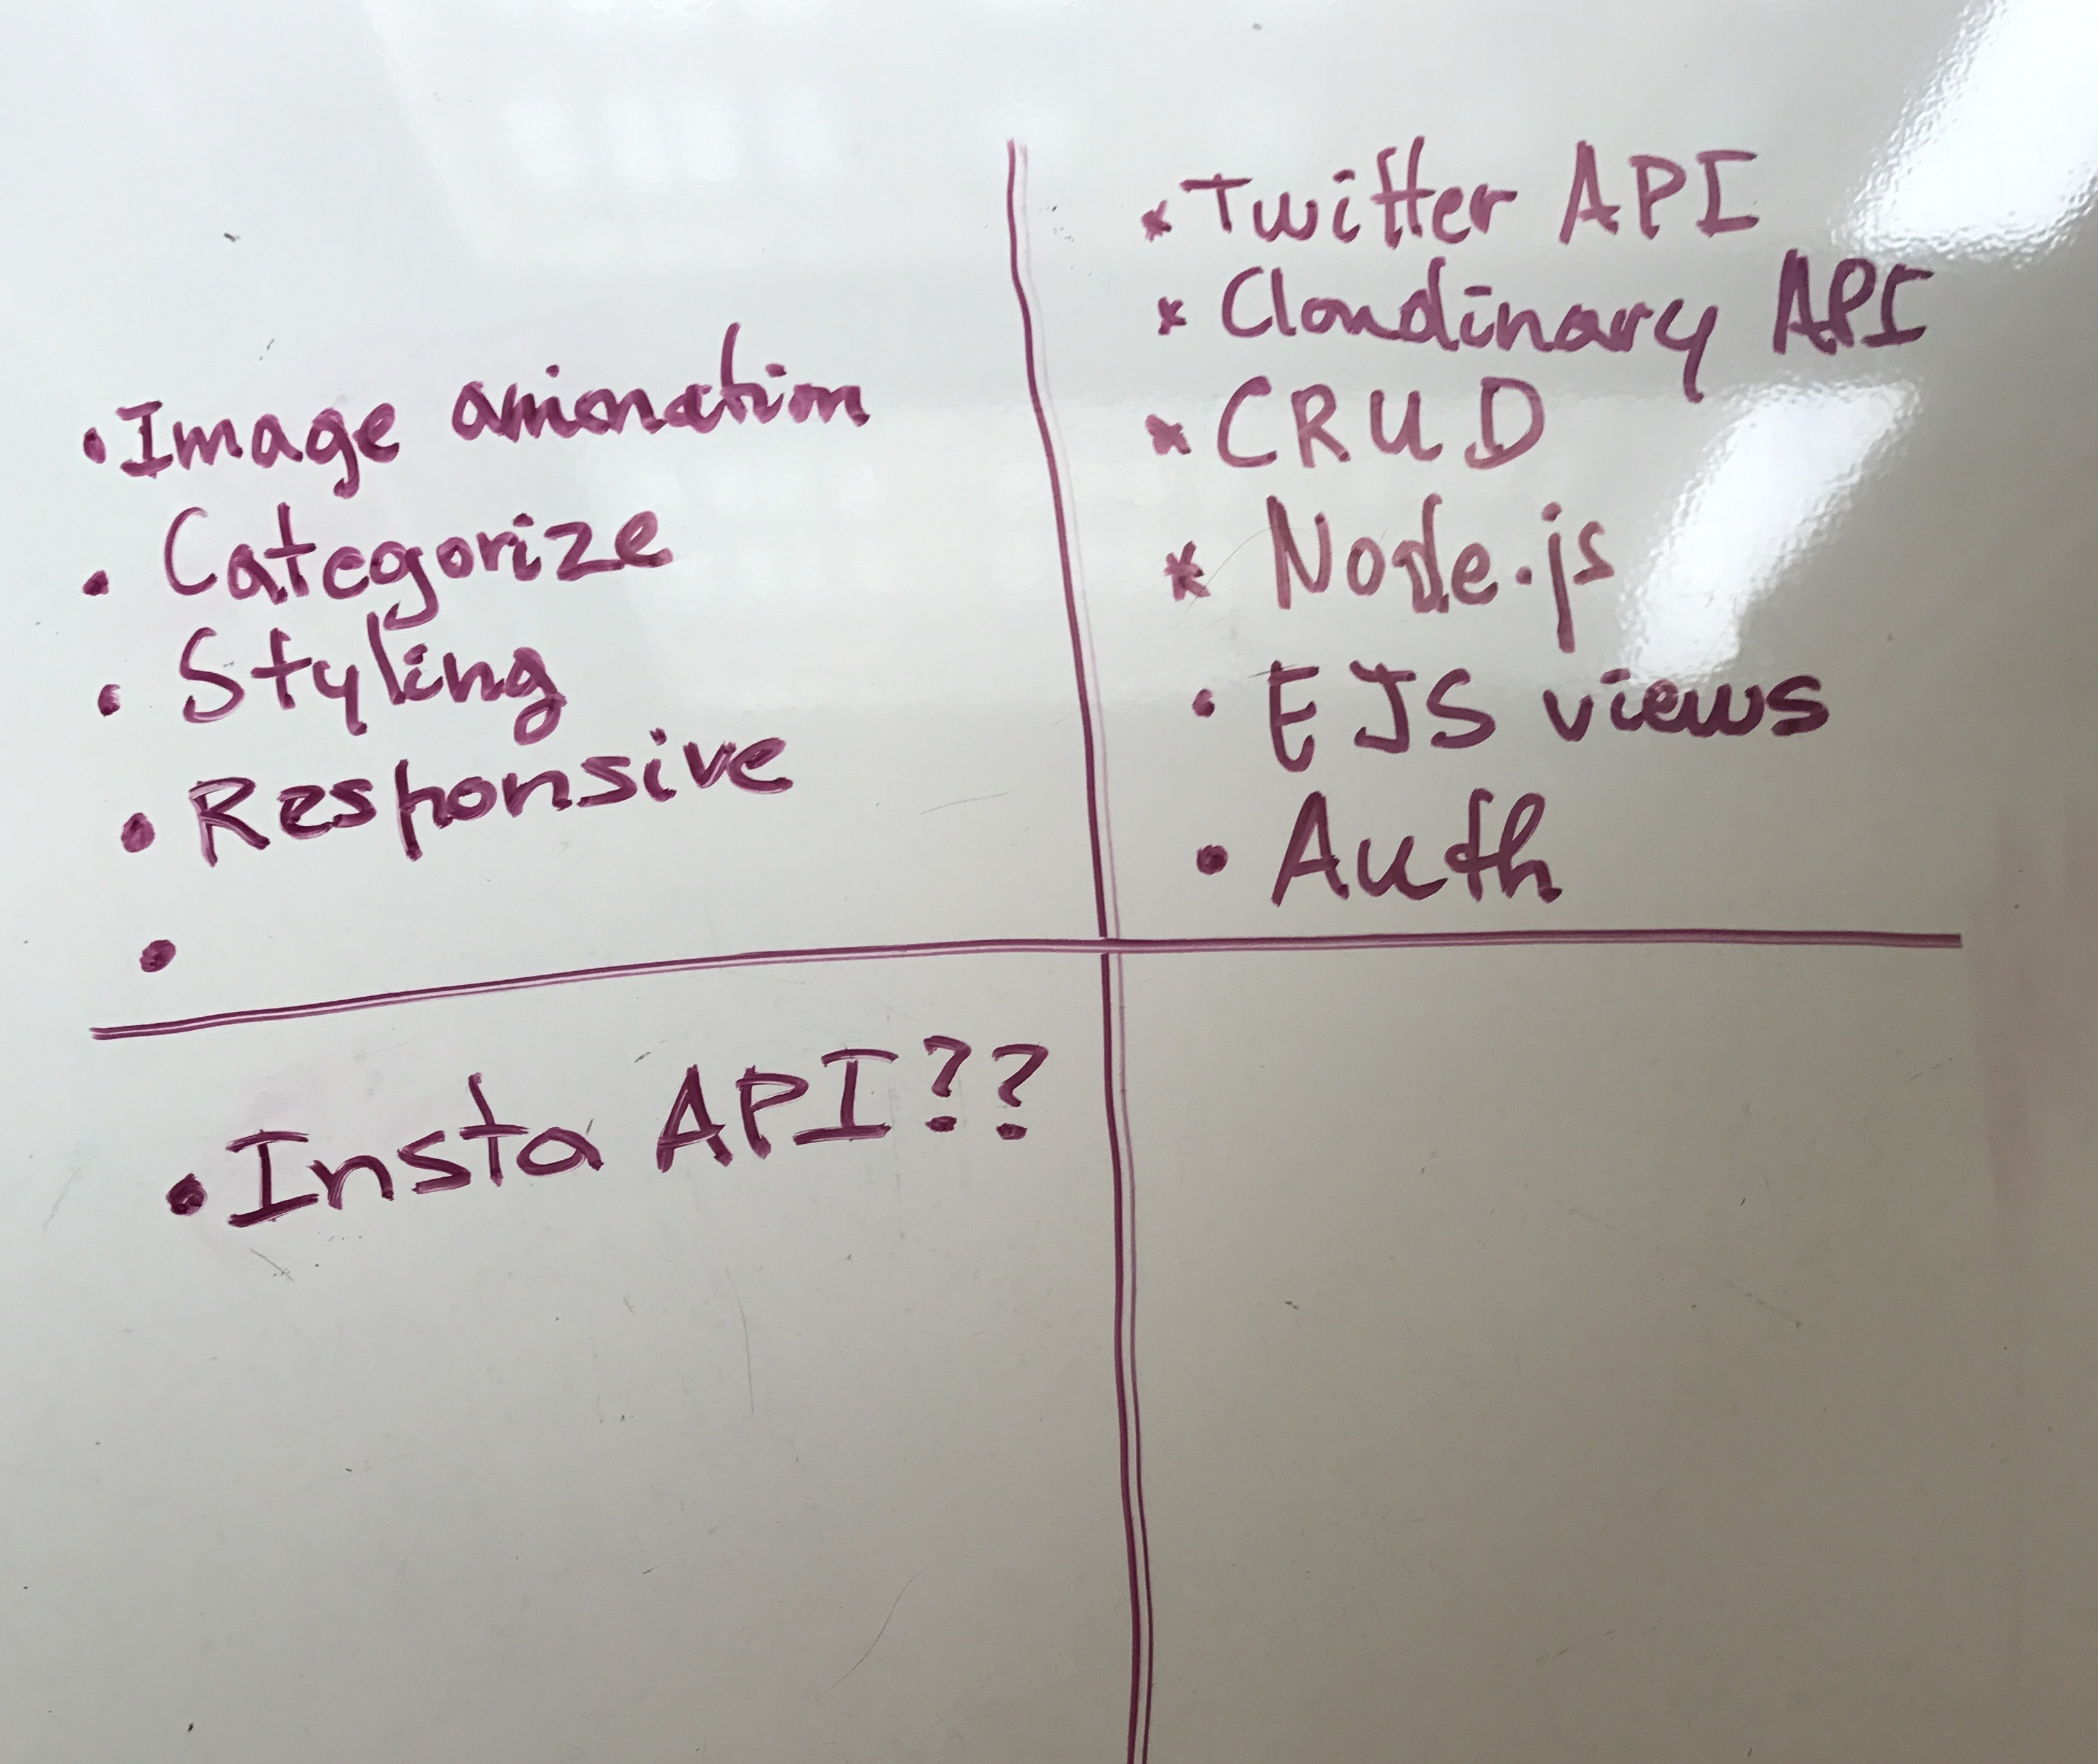 • Image animation
• Categorize
• Styling
• Responsive
•
* Twitter API
* Cloudinary API
* CRUD
* Node.js
• EJS views
• Auth
• Insta API??